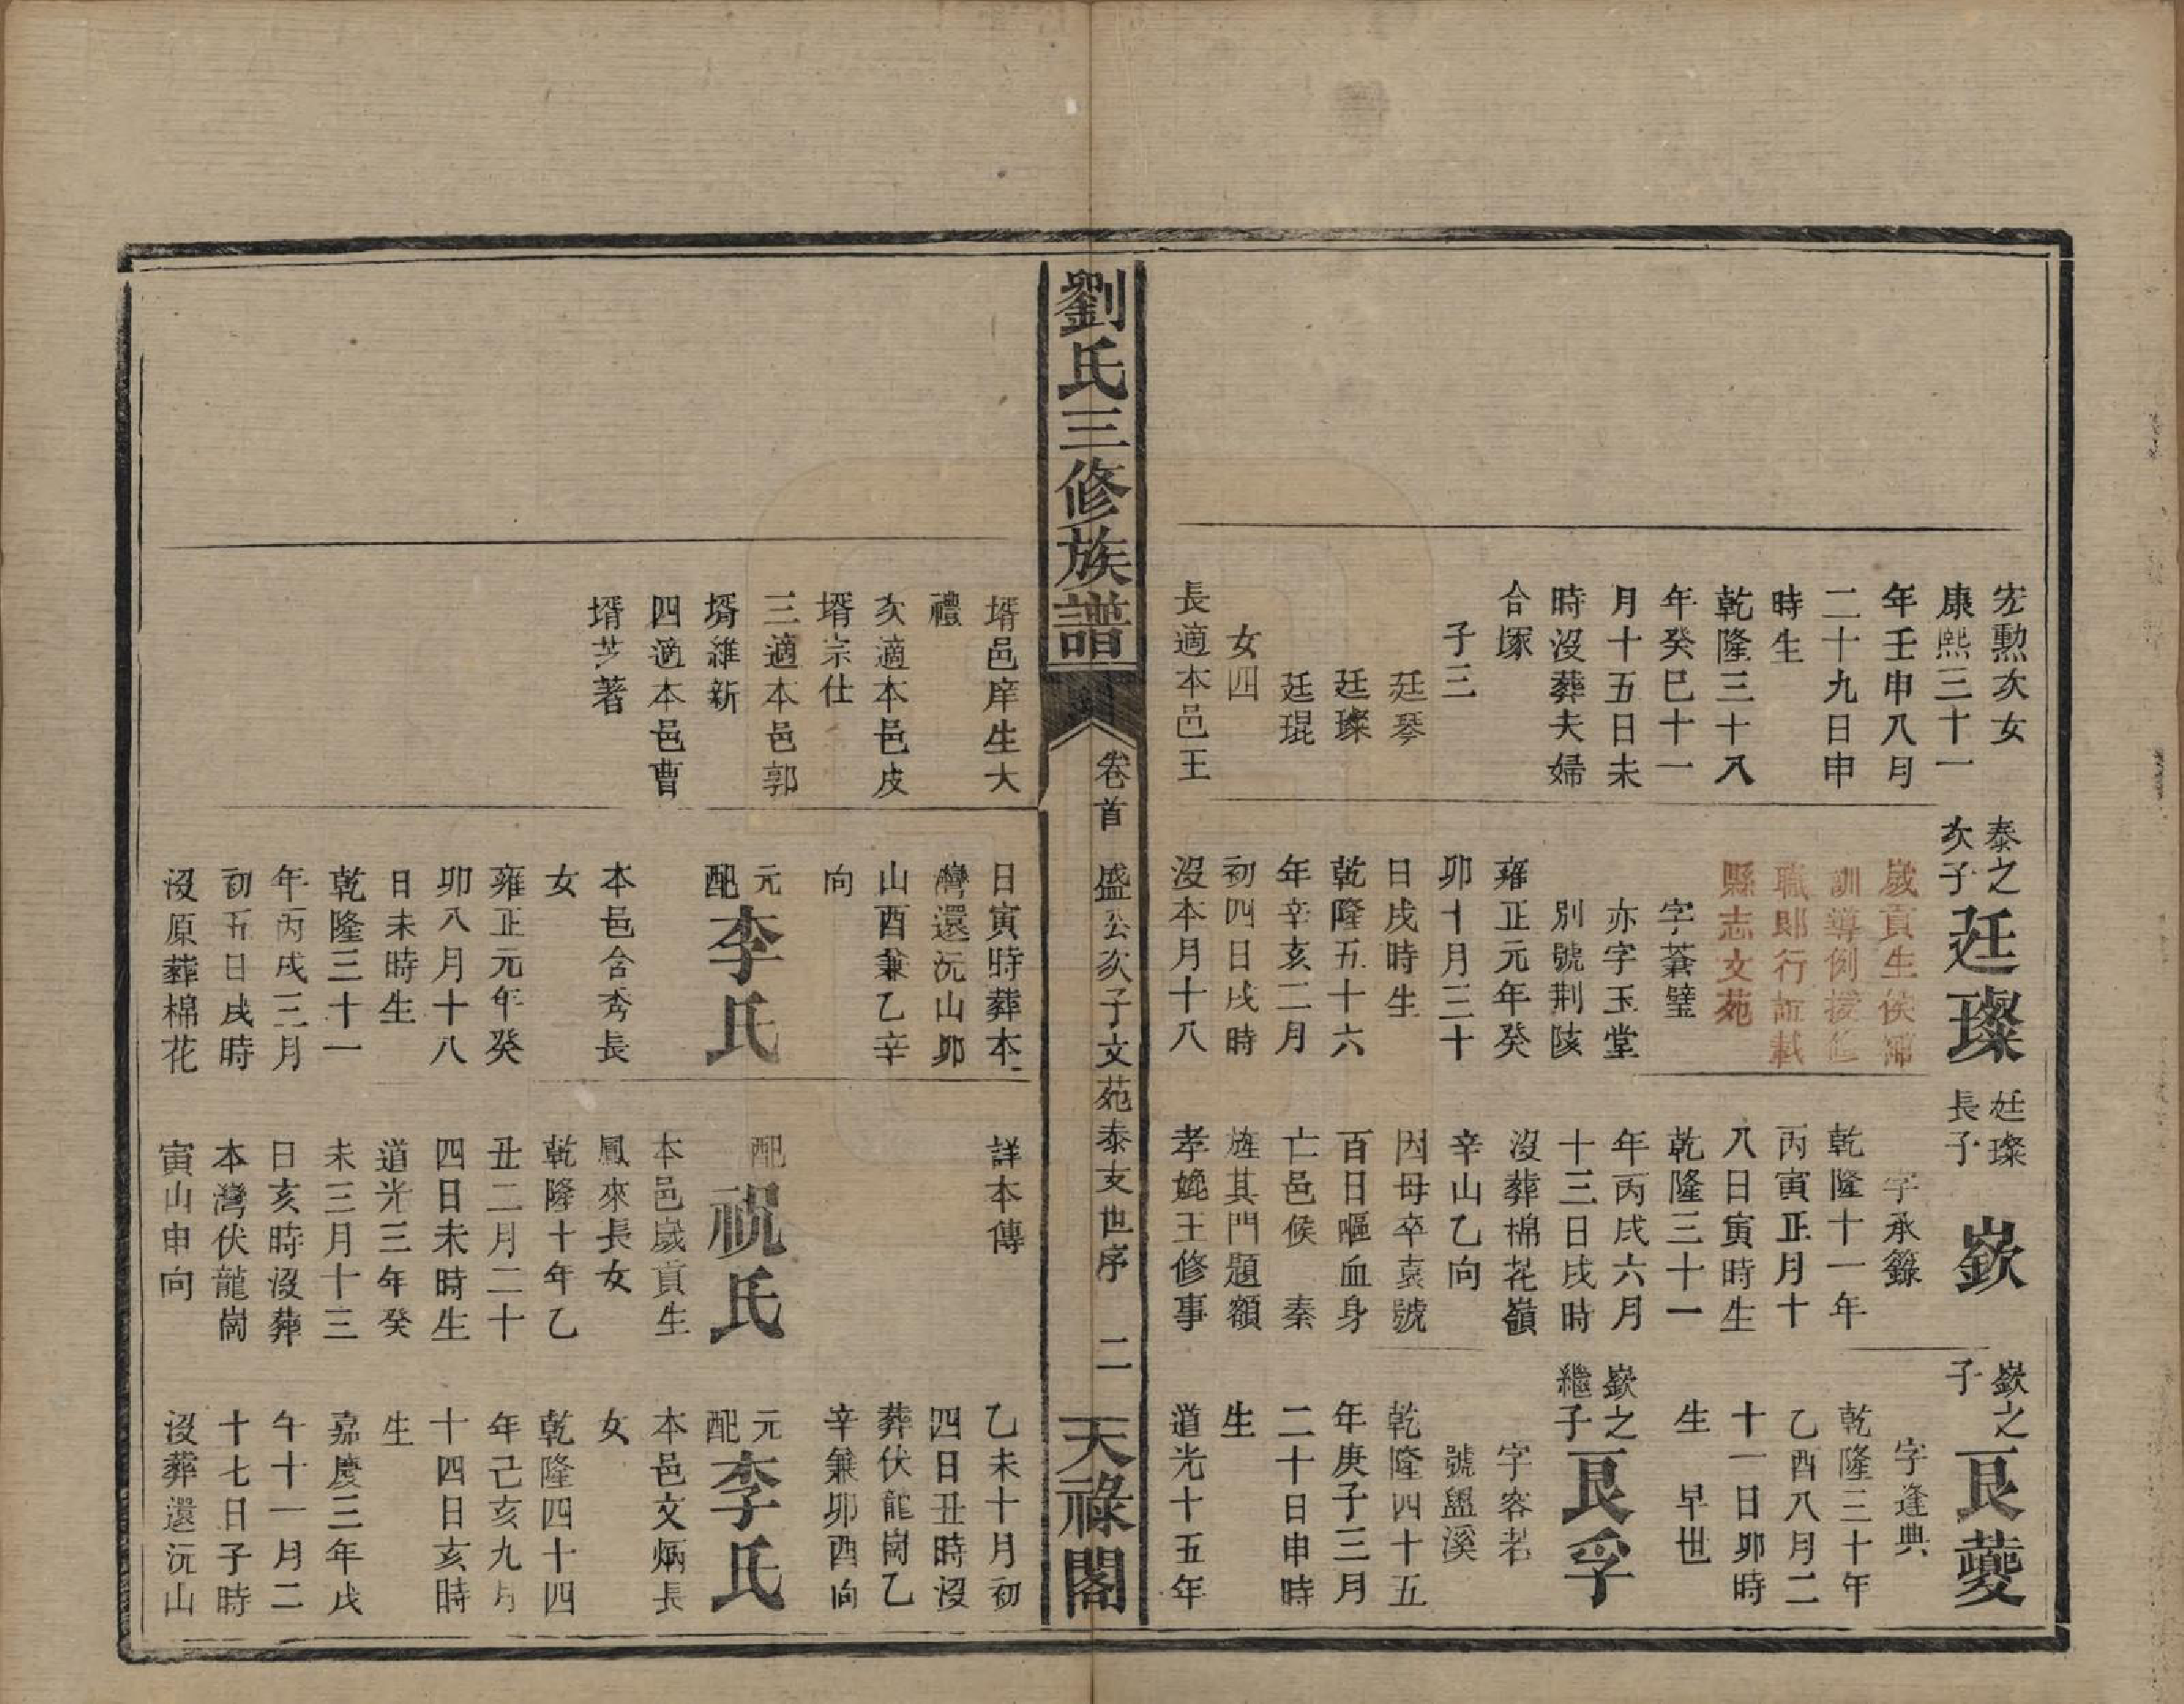 宏勲次女
康熙三十一
年壬申八月
二十九日申
時生
乾隆三十八
年癸巳十一
月十五日未
時沒葬夫婦
合塚
子三
廷琴
廷璨
廷琨
女四
長適本邑王
泰之
次子
廷璨
歲貢生候
訓導例授修
職郎行誼載
縣志文苑
字蒼璧
亦字玉堂
別號荆陔
雍正元年癸
卯十月三十
日戌時生
乾隆五十六
年辛亥二月
初四日戌時
沒本月十八
廷璨
長子
嶔
字承籙
乾隆十一年
丙寅正月十
八日寅時生
乾隆三十一
年丙戌六月
十三日戌時
沒葬棉花嶺
辛山乙向
因母卒哀號
百日嘔血身
亡邑候 秦
旌其門題額
孝媲王修事
嶔之
子
艮夔
字逢典
乾隆三十年
乙酉八月二
十一日卯時
生 早世
嶔之
繼子
艮孚
字容若
號盥溪
乾隆四十五
年庚子三月
二十日申時
生
道光十五年
劉氏三修族譜
卷首
盛公次子文苑泰支世序
二
天祿閣
壻邑庠生大
禮
次適本邑皮
壻宗仕
三適本邑郭
壻維新
四適本邑曹
壻芝著
日寅時葬本
灣還沅山卯
山酉兼乙辛
向
元
配
李氏
本邑含秀長
女
雍正元年癸
卯八月十八
日未時生
乾隆三十一
年丙戌三月
初五日戌時
沒原葬棉花
詳本傳
配
祝氏
本邑歲貢生
鳳來長女
乾隆十年乙
丑二月二十
四日未時生
道光三年癸
未三月十三
日亥時沒葬
本灣伏龍崗
寅山申向
乙未十月初
四日丑時沒
葬伏龍崗乙
辛兼卯酉向
元
配
李氏
本邑文炳長
女
乾隆四十四
年己亥九月
十四日亥時
生
嘉慶三年戊
午十一月二
十七日子時
沒葬還沅山